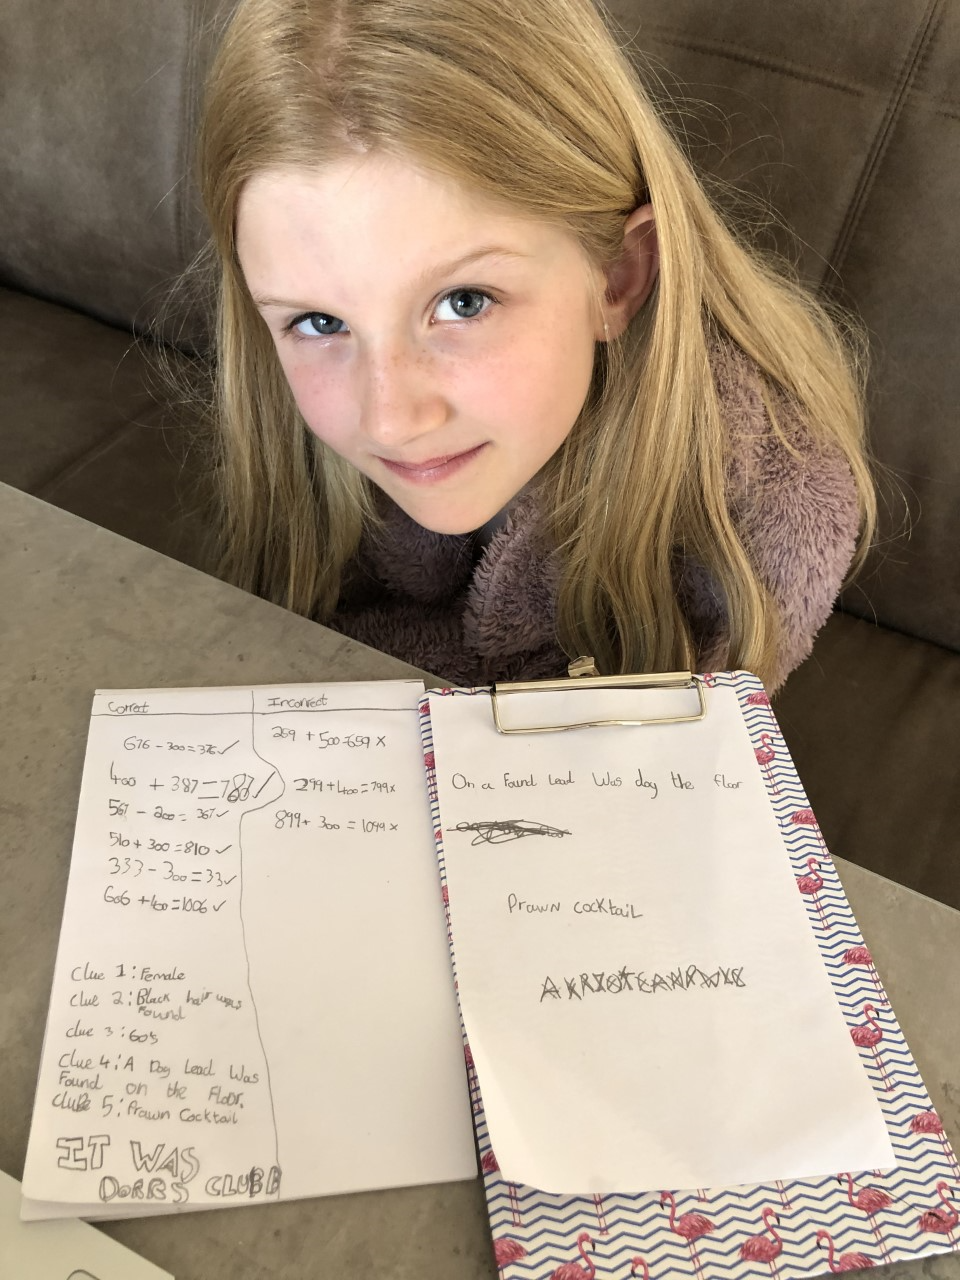 Correct
Incorrect
676 - 300 = 376 ✓
400 + 387 = 787 ✓
567 - 200 = 367 ✓
510 + 300 = 810 ✓
333 - 300 = 33 ✓
606 + 400 = 1006 ✓
259 + 500 = 659 x
299 + 400 = 799 x
899 + 300 = 1099 x
Clue 1: Female
Clue 2: Black hair was
Found
clue 3: 60s
Clue 4: A Dog Lead Was
Found on the Floor.
Clue 5: Prawn Cocktail
IT WAS
DORRS CLUBB
On a Found Lead Was dog the floor
Prawn cocktail